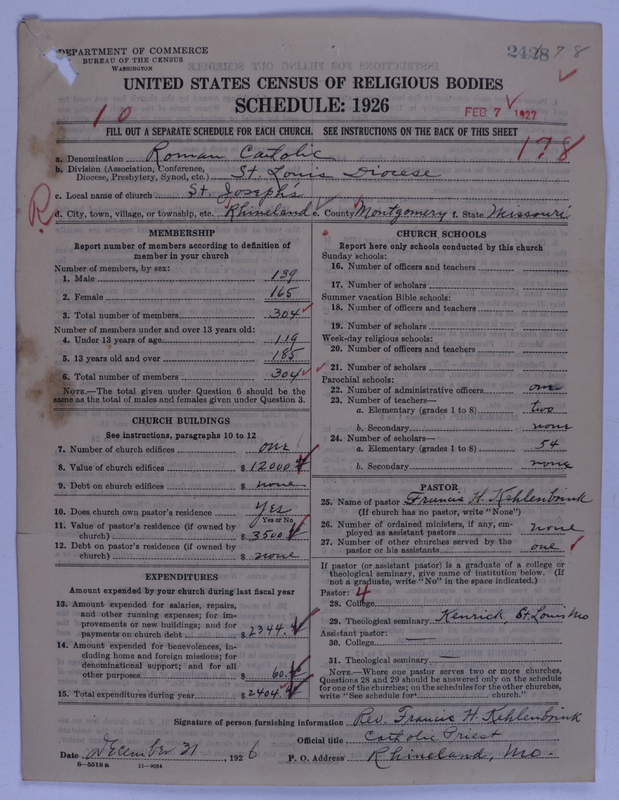 DEPARTMENT OF COMMERCE
BUREAU OF THE CENSUS
WASHINGTON
78
UNITED STATES CENSUS OF RELIGIOUS BODIES
SCHEDULE: 1926
10
FEB 7 1927
178
FILL OUT A SEPARATE SCHEDULE FOR EACH CHURCH. SEE INSTRUCTIONS ON THE BACK OF THIS SHEET
a. Denomination Roman Catholic
b. Division (Association, Conference, Diocese, Presbytery, Synod, etc.) St Louis Diocese
c. Local name of church St. Joseph's
R
d. City, town, village, or township, etc. Rhineland e. County Montgomery f. State Missouri
MEMBERSHIP
Report number of members according to definition of
member in your church
Number of members, by sex:
1. Male 139
2. Female 165
3. Total number of members 304
Number of members under and over 13 years old:
4. Under 13 years of age 119
5. 13 years old and over 185
6. Total number of members 304
NOTE.—The total given under Question 6 should be the
same as the total of males and females given under Question 3.
CHURCH BUILDINGS
See instructions, paragraphs 10 to 12
7. Number of church edifices one
8. Value of church edifices $ 12000
9. Debt on church edifices $ none
10. Does church own pastor's residence? Yes
Yes or No
11. Value of pastor's residence (if owned by
church) $ 3500
12. Debt on pastor's residence (if owned by
church) $ none
EXPENDITURES
Amount expended by your church during last fiscal year
13. Amount expended for salaries, repairs,
and other running expenses; for im-
provements or new buildings; and for
payments on church debt $ 2344.
14. Amount expended for benevolences, in-
cluding home and foreign missions; for
denominational support; and for all
other purposes $ 60.
15. Total expenditures during year $ 2404.
CHURCH SCHOOLS
Report here only schools conducted by this church
Sunday schools:
16. Number of officers and teachers
17. Number of scholars
Summer vacation Bible schools:
18. Number of officers and teachers
19. Number of scholars
Week-day religious schools:
20. Number of officers and teachers
21. Number of scholars
Parochial schools:
22. Number of administrative officers one
23. Number of teachers—
a. Elementary (grades 1 to 8) two
b. Secondary none
24. Number of scholars—
a. Elementary (grades 1 to 8) 54
b. Secondary none
PASTOR
25. Name of pastor Francis H. Kehlenbrink
(If church has no pastor, write "None")
26. Number of ordained ministers, if any, em-
ployed as assistant pastors none
27. Number of other churches served by the
pastor or his assistants one
If pastor (or assistant pastor) is a graduate of a college or
theological seminary, give name of institution below. (If
not a graduate, write "No" in the space indicated.)
Pastor: 4
28. College
29. Theological seminary Kenrick, St. Louis Mo
Assistant pastor:
30. College —
31. Theological seminary —
NOTE.—Where one pastor serves two or more churches,
Questions 28 and 29 should be answered only on the schedule
for one of the churches; on the schedules for the other churches,
write "See schedule for church."
Signature of person furnishing information Rev. Francis H. Kehlenbrink
Official title Catholic Priest
Date December 31, 1926 P. O. Address Rhineland, Mo.
8—5518 a 11—9054